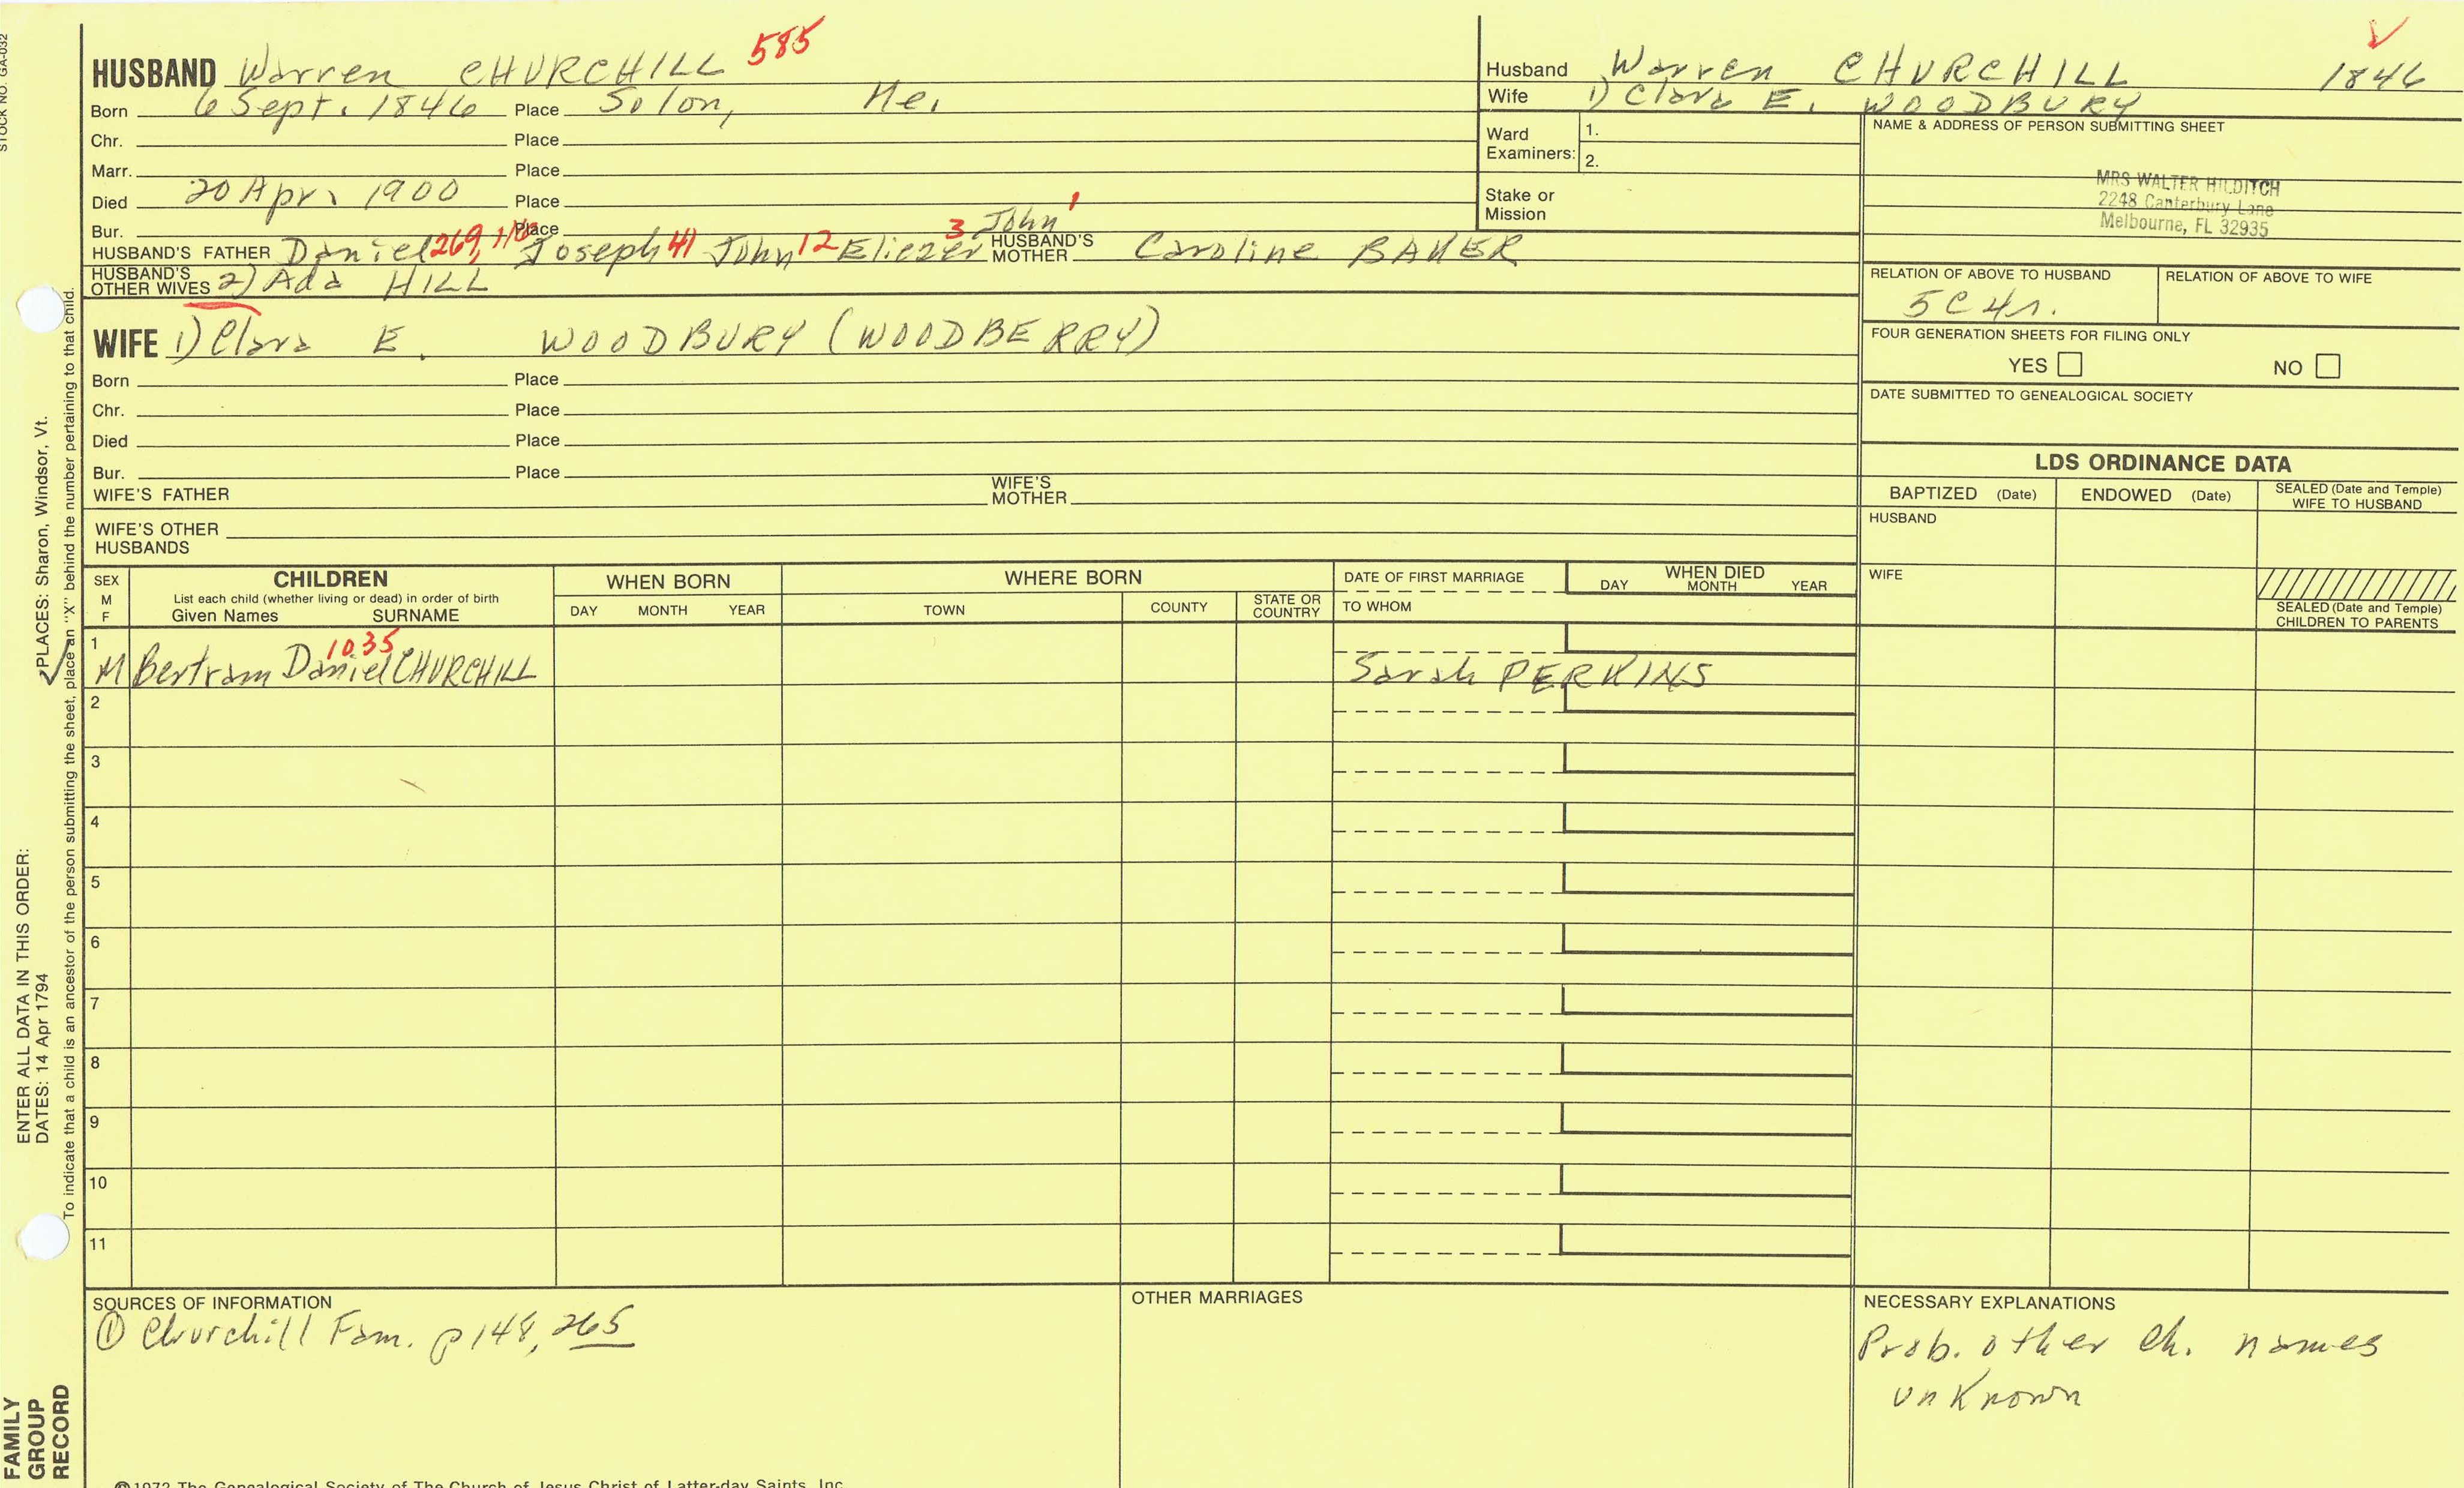 STOCK NO. GA-032
HUSBAND Warren CHURCHILL 585
Born 6 Sept. 1846 Place Solon, Me.
Chr. Place
Marr. Place
Died 20 Apr. 1900 Place
Bur. Place
HUSBAND'S FATHER Daniel 269, Joseph 41 John 12 Eliezer 3 John 1 HUSBAND'S MOTHER Caroline BAKER
HUSBAND'S OTHER WIVES 2) Ada HILL
Husband Warren CHURCHILL 1846
Wife 1) Clara E. WOODBURY
Ward Examiners: 1.
2.
Stake or Mission
NAME & ADDRESS OF PERSON SUBMITTING SHEET
MRS WALTER HILDITCH
2248 Canterbury Lane
Melbourne, FL 32935
RELATION OF ABOVE TO HUSBAND RELATION OF ABOVE TO WIFE
5C4r.
FOUR GENERATION SHEETS FOR FILING ONLY
YES NO
DATE SUBMITTED TO GENEALOGICAL SOCIETY
WIFE 1) Clara E. WOODBURY (WOODBERRY)
Born Place
Chr. Place
Died Place
Bur. Place
WIFE'S FATHER WIFE'S MOTHER
WIFE'S OTHER HUSBANDS
LDS ORDINANCE DATA
BAPTIZED (Date) ENDOWED (Date) SEALED (Date and Temple) WIFE TO HUSBAND
HUSBAND
WIFE
SEALED (Date and Temple) CHILDREN TO PARENTS
SEX M F
CHILDREN
List each child (whether living or dead) in order of birth
Given Names SURNAME
WHEN BORN
DAY MONTH YEAR
WHERE BORN
TOWN COUNTY STATE OR COUNTRY
DATE OF FIRST MARRIAGE
TO WHOM
WHEN DIED
DAY MONTH YEAR
1 M Bertram Daniel 1035 CHURCHILL Sarah PERKINS
2
3
4
5
6
7
8
9
10
11
SOURCES OF INFORMATION
① Churchill Fam. p 148, 265
OTHER MARRIAGES
NECESSARY EXPLANATIONS
Prob. other ch. names
unknown
©1972 The Genealogical Society of The Church of Jesus Christ of Latter-day Saints, Inc.
ENTER ALL DATA IN THIS ORDER:
DATES: 14 Apr 1794
PLACES: Sharon, Windsor, Vt.
To indicate that a child is an ancestor of the person submitting the sheet, place an "X" behind the number pertaining to that child.
FAMILY
GROUP
RECORD